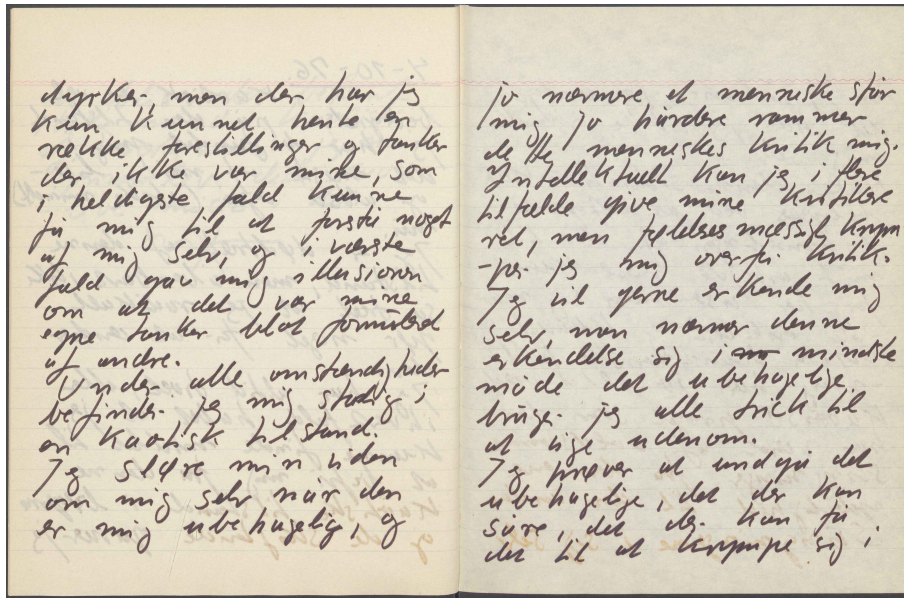 dyrker, men der har jeg
kun kunnet hente en
række forestillinger og tanker
der ikke var mine, som
i heldigste fald kunne
få mig til at forstå noget
af mig selv, og i værste
fald gav mig illusionen
om at det var mine
egne tanker blot formuleret
af andre.
Under alle omstændigheder
befinder jeg mig stadig i
en kaotisk tilstand.
Jeg sløre min viden
om mig selv når den
er mig ubehagelig, og
jo nærmere et menneske står
mig jo hårdere rammer
dette menneskes kritik mig.
Intellektuelt kan jeg i flere
tilfælde give mine kritikere
ret, men følelsesmæssigt krym
-per jeg mig overfor kritik.
Jeg vil gerne erkende mig
selv, men nærmer denne
erkendelse sig i mindste
måde det ubehagelige,
bruger jeg alle trick til
at vige udenom.
Jeg prøver at undgå det
ubehagelige, det der kan
såre, det der kan få
det til at krympe sig i